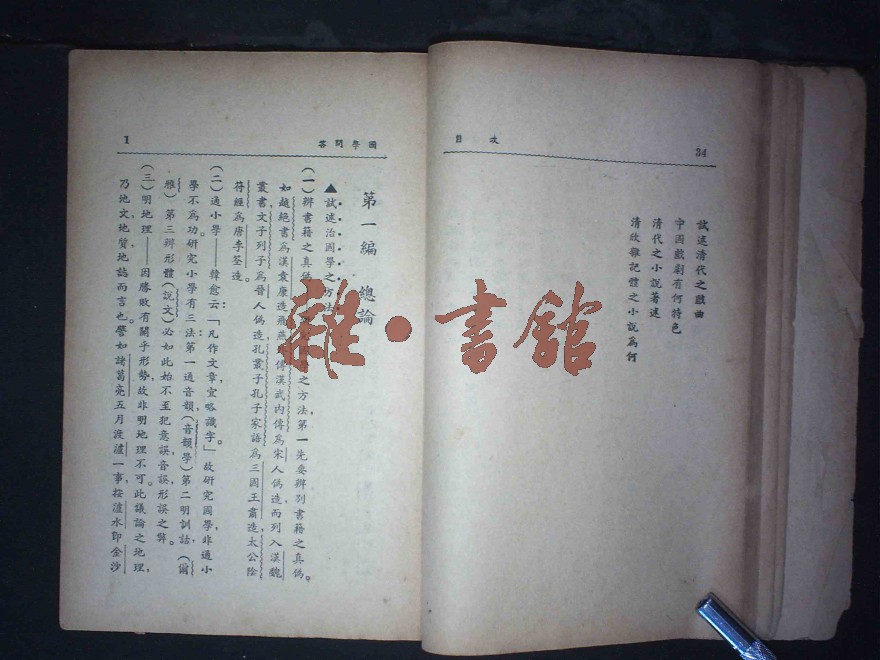 34
次目
試述清代之戲曲
中國戲劇有何特色
清代之小說著述
清放雜記體之小說為何
國學問答
1
第一編 總論
▲試述治國學之方法
(一)辨書籍之真偽 之方法第一先要辨別書籍之真偽。
如越絕書為漢袁康造飛燕外傳漢武內傳為宋人偽造,而列入漢魏
叢書,文子列子為晉人偽造,孔叢子孔子家語為三國王肅造,太公陰
符經為唐李筌造。
(二)通小學——韓愈云:「凡作文章宜略識字。」故研究國學,非通小
學不為功。研究小學有三法:第一通音韻(音韻學)第二明訓詁,(爾
雅)第三辨形體(說文)必如此始不至犯意誤,音誤,形誤之弊。
(三)明地理——因勝敗有關乎形勢,故非明地理不可。此議論之地理,
乃地文,地質,地誌而言也。譬如諸葛亮五月渡瀘一事,按瀘水即金沙
雜·書館